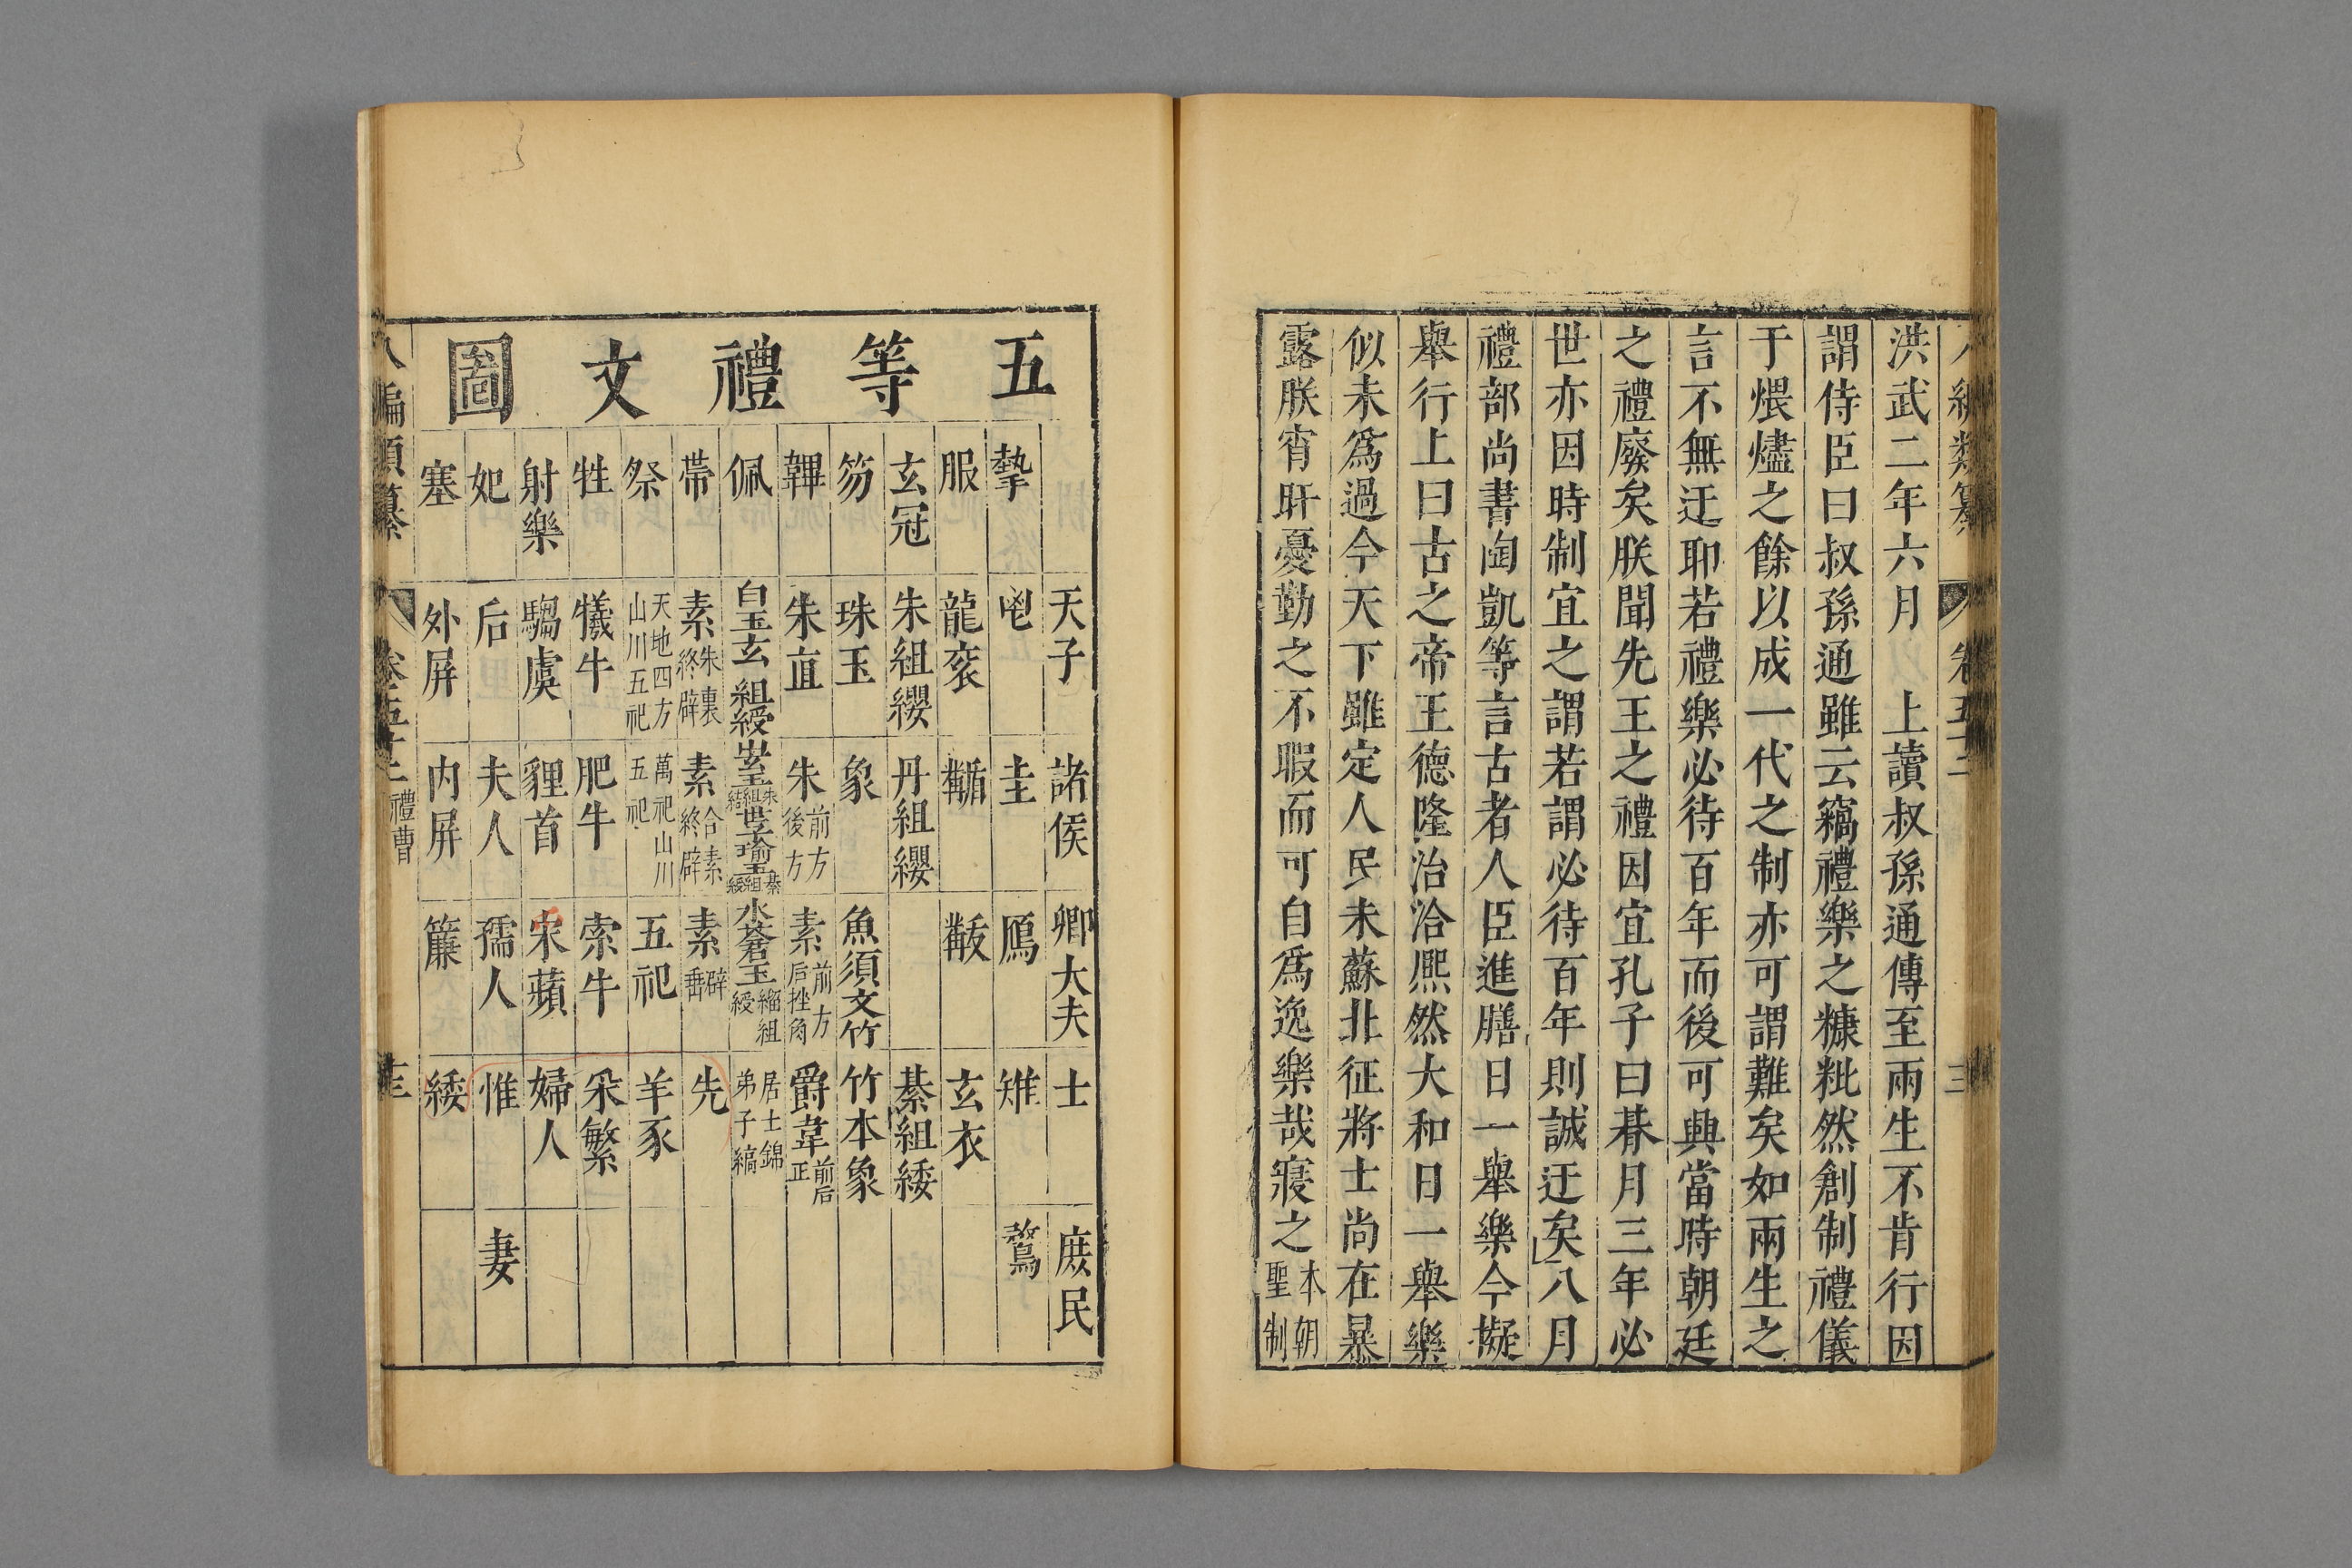 洪武二年六月　上讀叔孫通傳至兩生不肯行因
謂侍臣曰叔孫通雖云竊禮樂之糠粃然創制禮儀
于煨燼之餘以成一代之制亦可謂難矣如兩生之
言不無迂耶若禮樂必待百年而後可興當時朝廷
之禮廢矣朕聞先王之禮因宜孔子曰朞月三年必
世亦因時制宜之謂若謂必待百年則誠迂矣八月
禮部尚書陶凱等言古者人臣進膳日一舉樂今擬
舉行上曰古之帝王德隆治洽熈然大和日一舉樂
似未爲過今天下雖定人民未蘇北征將士尚在暴
露朕宵旰憂勤之不暇而可自爲逸樂哉寢之本朝聖制
五等禮文圖
天子　諸侯　卿大夫　士　庶民
摯　鬯　圭　鴈　雉　鶩
服　龍衮　黼　黻　玄衣
玄冠　朱組纓　丹組纓　綦組緌
笏　珠玉　象　魚須文竹　竹本象
韠　朱直　朱前方後方　素前方后挫角　爵韋前后正
佩　白玉玄組綬　山玄玉朱組綬世子瑜玉綦組綬　水蒼玉緇組綬　居士錦弟子縞
帶　素朱裏終辟　素合素終辟　素辟垂　先
祭　天地四方山川五祀　萬祀山川五祀　五祀　羊豕
牲　犧牛　肥牛　索牛　采繁
射樂　騶虞　貍首　采蘋　婦人
妃　后　夫人　孺人　惟　妻
塞　外屏　内屏　簾　緌
八編類纂　卷五十二　禮曹